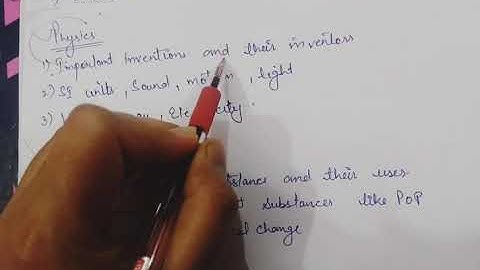 Physics
1) Important Inventions and their inventors
2) SI units, Sound, motion, light
3)
and their uses
substances like POP
change